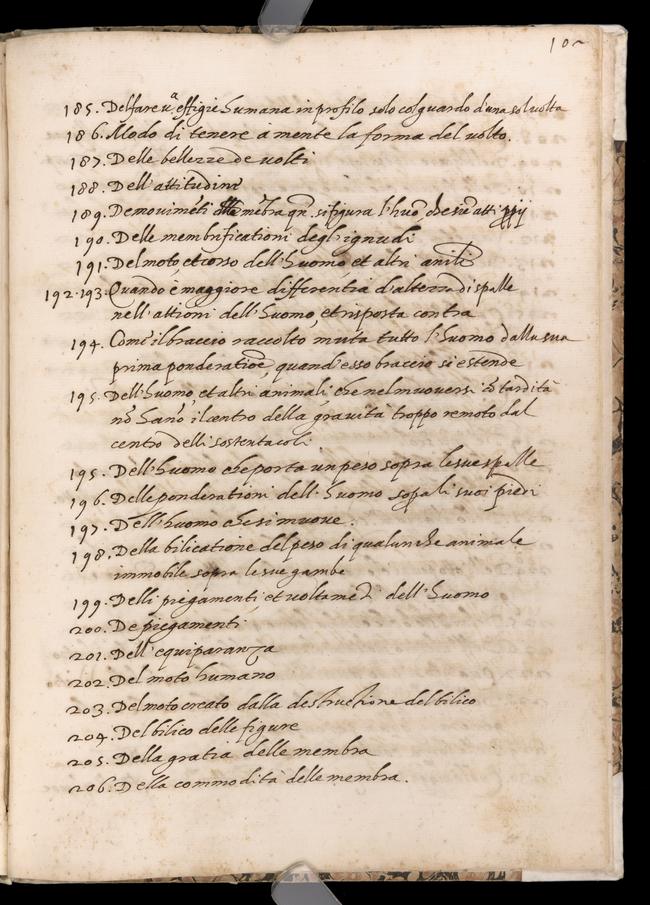 102
185. Delfare u.a effigie humana in profilo solo col guardo d'una sol uolta
186. Modo di tenere à mente la forma del uolto.
187. Delle bellezze de uolti
188. Dell'attitudine
189. De mouimēti delle mēbra qn. si figura l'huo, che sia atti ppij
190. Delle membrificationi degl'ignudi
191. Del moto, et corso dell'huomo et altri anili
192.193. Quando è maggiore differentia d'altezza di spalle
nell'attioni dell'huomo, et risposta contra
194. Come il braccio raccolto muta tutto l'huomo dalla sua
prima ponderatiōe, quand'esso braccio si estende
195. Dell'huomo, et altri animali, che nel muouersi cō tardità
nō hano il centro della grauità troppo remoto dal
centro delli sostentacoli
195. Dell'huomo che porta un peso sopra le sue spalle
196. Delle ponderationi dell'huomo sopra li suoi piedi
197. Dell'huomo che si muoue.
198. Della bilicatione del peso di qualunche animale
immobile sopra le sue gambe
199. Delli piegamenti et uoltamēti dell'huomo
200. De piegamenti
201. Dell'equiparanza
202. Del moto humano
203. Del moto creato dalla destructione del bilico
204. Del bilico delle figure
205. Della gratia delle membra
206. Della commodità delle membra.